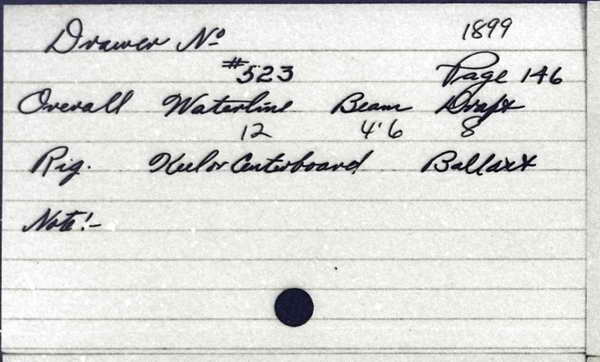 Drawer No 1899
#523 Page 146
Overall Waterline Beam Draft
12 4'6 8
Rig. Keel or Centerboard Ballast
Note!-